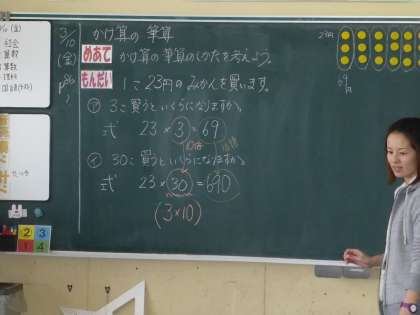 3/10
(金)
P86
かけ算の筆算
めあて かけ算の筆算のしかたを考えよう。
もんだい 1こ23円のみかんを買います。
ア 3こ買うといくらになりますか。
式 23×3=69
10倍 10倍
イ 30こ買うといくらになりますか。
式 23×30=690
(3×10)
23円
69円
算数
理科
2 3
1 4